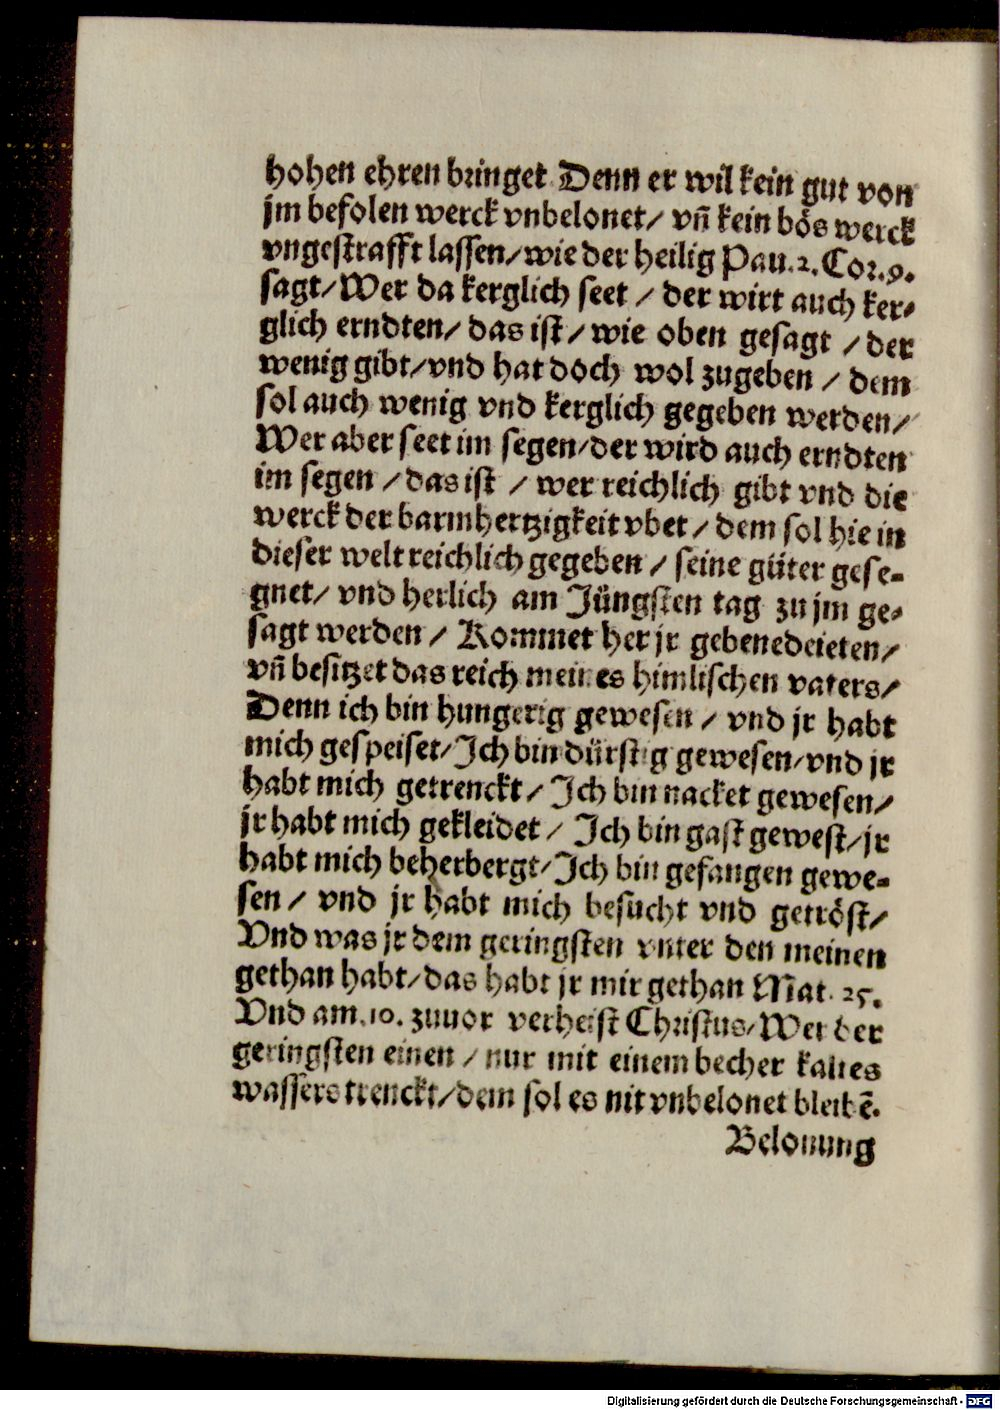 hohen ehren bringet Denn er wil kein gut von
jm befolen werck vnbelonet/ vn̄ kein bös werck
vngestrafft lassen/wie der heilig Pau.2.Cor.9.
sagt/Wer da kerglich seet / der wirt auch ker⸗
glich erndten/ das ist/ wie oben gesagt / der
wenig gibt/vnd hat doch wol zugeben / dem
sol auch wenig vnd kerglich gegeben werden/
Wer aber seet im segen/der wird auch erndten
im segen / das ist / wer reichlich gibt vnd die
werck der barmhertzigkeit vbet / dem sol hie in
dieser welt reichlich gegeben / seine güter gese⸗
gnet/ vnd herlich am Jüngsten tag zu jm ge⸗
sagt werden / Kommet her jr gebenedeieten/
vn̄ besitzet das reich meines himlischen vaters/
Denn ich bin hungerig gewesen / vnd jr habt
mich gespeiset/Ich bin dürstig gewesen/vnd jr
habt mich getrenckt/ Ich bin nacket gewesen/
jr habt mich gekleidet / Ich bin gast gewest/jr
habt mich beherbergt/Ich bin gefangen gewe⸗
sen / vnd jr habt mich besucht vnd getröst/
Vnd was jr dem geringsten vnter den meinen
gethan habt/das habt jr mir gethan Mat. 25.
Vnd am.10. zuuor verheist Christus/Wer der
geringsten einen / nur mit einem becher kaltes
wassers trenckt/dem sol es nit vnbelonet bleibē.
Belonung
Digitalisierung gefördert durch die Deutsche Forschungsgemeinschaft - DFG